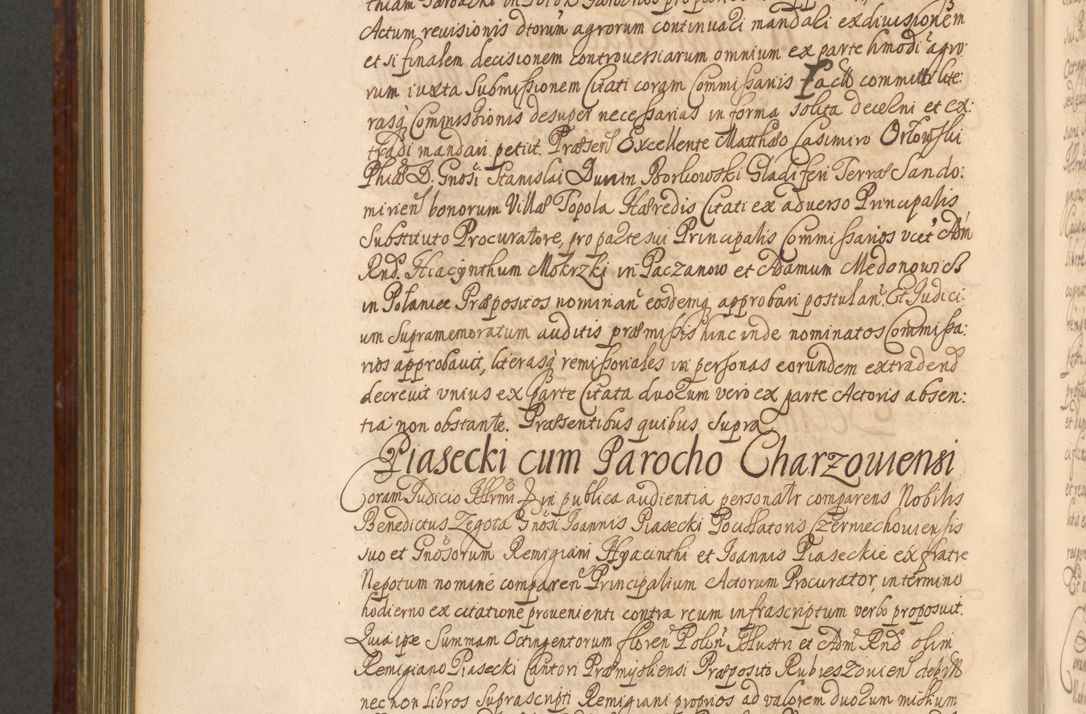 Actum revisionis dtorum agrorum continuati mandali exdivisionem
et si finalem decisionem controversiarum omnium ex parte hmodi agro:
rum iuxta Submissionem Citati coram Commissariis facta committi lite:
rasq Commissionis desuper necessarias in forma solita decerni et ex:
tradi mandari petiit. Præsen Excellente Matthæo Casimiro Orłowski
Phiæ D. Gnosi Stanislai Dunin Borkowski Gladiferi Terræ Sando:
mirien bonorum Villæ Topola Hæredis Citati ex adverso Principalis
Substituto Procuratore, pro parte sui Principalis Commissarios vcet Adm
Rnd. Hiacynthum Mokrzki in Paczanow et Adamum Medonowich
in Polaniec Præpositos nominan eosdemq approbari postulan. Et Judici:
um Supramemoratum auditis præmissis hinc inde nominatos Commissa:
rios approbavit, literasq remissoriales in personas eorundem extradend
decrevit unius ex parte Citata duorum vero ex parte Actoris absen:
tia non obstante. Præsentibus quibus supra
Piasecki cum Parocho Charzoviensi
Coram Judicio in publica audientia personalr comparens Nobilis
Benedictus Zegota Gnosi Joannis Piasecki Pocillatoris Czerniechoviensis
suo et Gnosorum Remigiani Hyacinthi et Joannis Piaseckie ex fratre
Nepotum nomine comparen Principalium Actorum Procurator, in termino
hodierno ex citatione provenienti contra reum infrascriptum verbo proposuit.
Quia ipse Summam Octingentorum floren Polon Illustri et Adm Rnd olim
Remigiano Piasecki Cantori Præmysliensi Præposito Rubieszovien
nec non Libros suprascripti Remigiani proprios ad valorem duorum millium